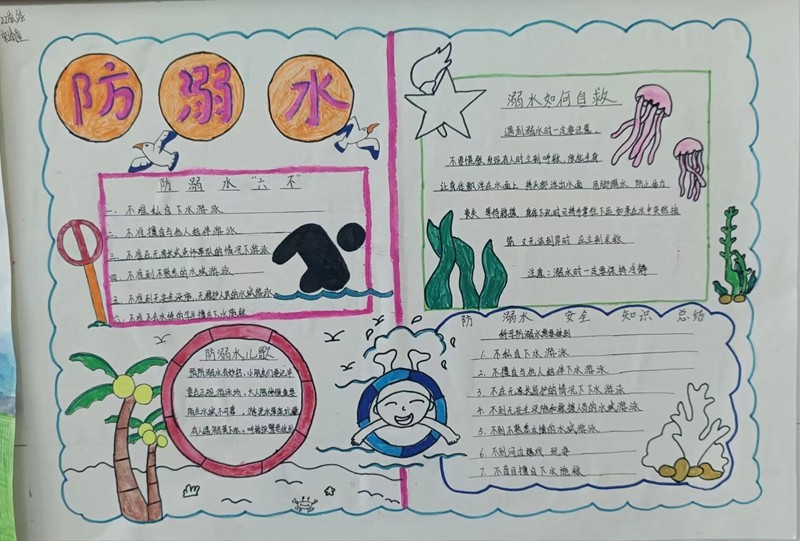 防溺水
防溺水"六不"
一、不准私自下水游泳
二、不准擅自与他人结伴游泳
三、不准在无家长或老师带队的情况下游泳
四、不准到不熟悉的水域游泳
五、不准到无安全设施、无救护人员的水域游泳
六、不准不会水性的学生擅自下水施救
防溺水儿歌
预防溺水有妙招，小朋友们要记牢
要去正规游泳池，大人陪伴很重要
有人遇溺落下水，呼救报警要做到
溺水如何自救
遇到溺水时一定要注意，
不要慌张，发现有人时立刻呼救，
让身体漂浮在水面上
注意：溺水时一定要保持冷静
防溺水安全知识总结
科学防溺水需要做到
1. 不私自下水游泳
2. 不擅自与他人结伴下水游泳
3. 不在无家长监护的情况下下水游泳
4. 不到无安全设施和救援人员的水域游泳
5. 不到不熟悉水情的水域游泳
6. 不到河边嬉戏 玩耍
7. 不盲目擅自下水施救